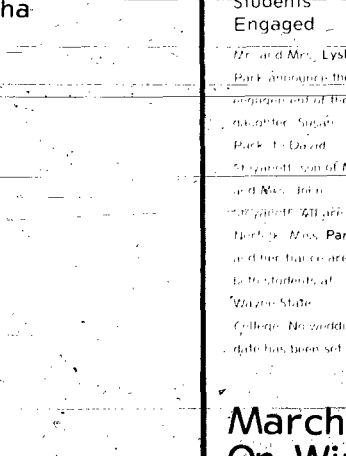 ha
Students
Engaged
Mr. and Mrs. Lysl
Park announce the
engagement of the
daughter Susan
Park to David
son of M
and Mrs. John
All are
Norfolk Miss Par
and her fiance are
both students at
Wayne State
College. No weddi
date has been set
March
On Wi